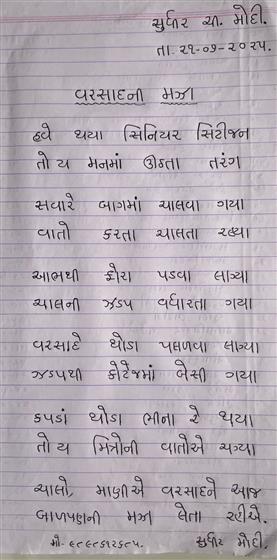 સુધીર ચી. મોદી.
તા. ૨૧-૦૭-૨૦૨૫.
વરસાદની મઝા
હવે થયા સિનિયર સિટીજન
તો ય મનમાં ઊઠતા તરંગ
સવારે બાગમાં ચાલવા ગયા
વાતો કરતા ચાલતા રહ્યા
આભથી ફોરા પડવા લાગ્યા
ચાલની ઝડપ વધારતા ગયા
વરસાદે થોડા પલળવા લાગ્યા
ઝડપથી કોટેજમાં બેસી ગયા
કપડાં થોડા ભીના રે થયા
તો ય મિત્રોની વાતોએ ચગ્યા
ચાલો, માણીએ વરસાદને આજ
બાળપણની મઝા લેતા રહીએ.
સુધીર મોદી.